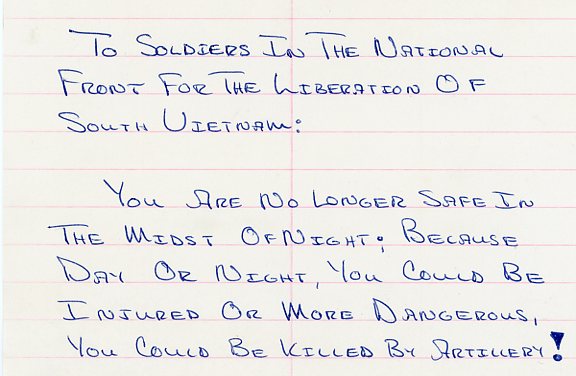 To Soldiers In The National
Front For The Liberation Of
South Vietnam:
You Are No Longer Safe In
The Midst Of Night; Because
Day Or Night, You Could Be
Injured Or More Dangerous,
You Could Be Killed By Artillery!